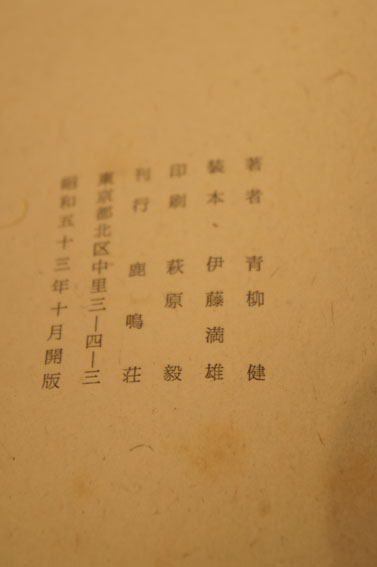 著者 青柳健
装本、伊藤満雄
印刷 萩原毅
刊行 鹿鳴荘
東京都北区中里三―四―三
昭和五十三年十月開版